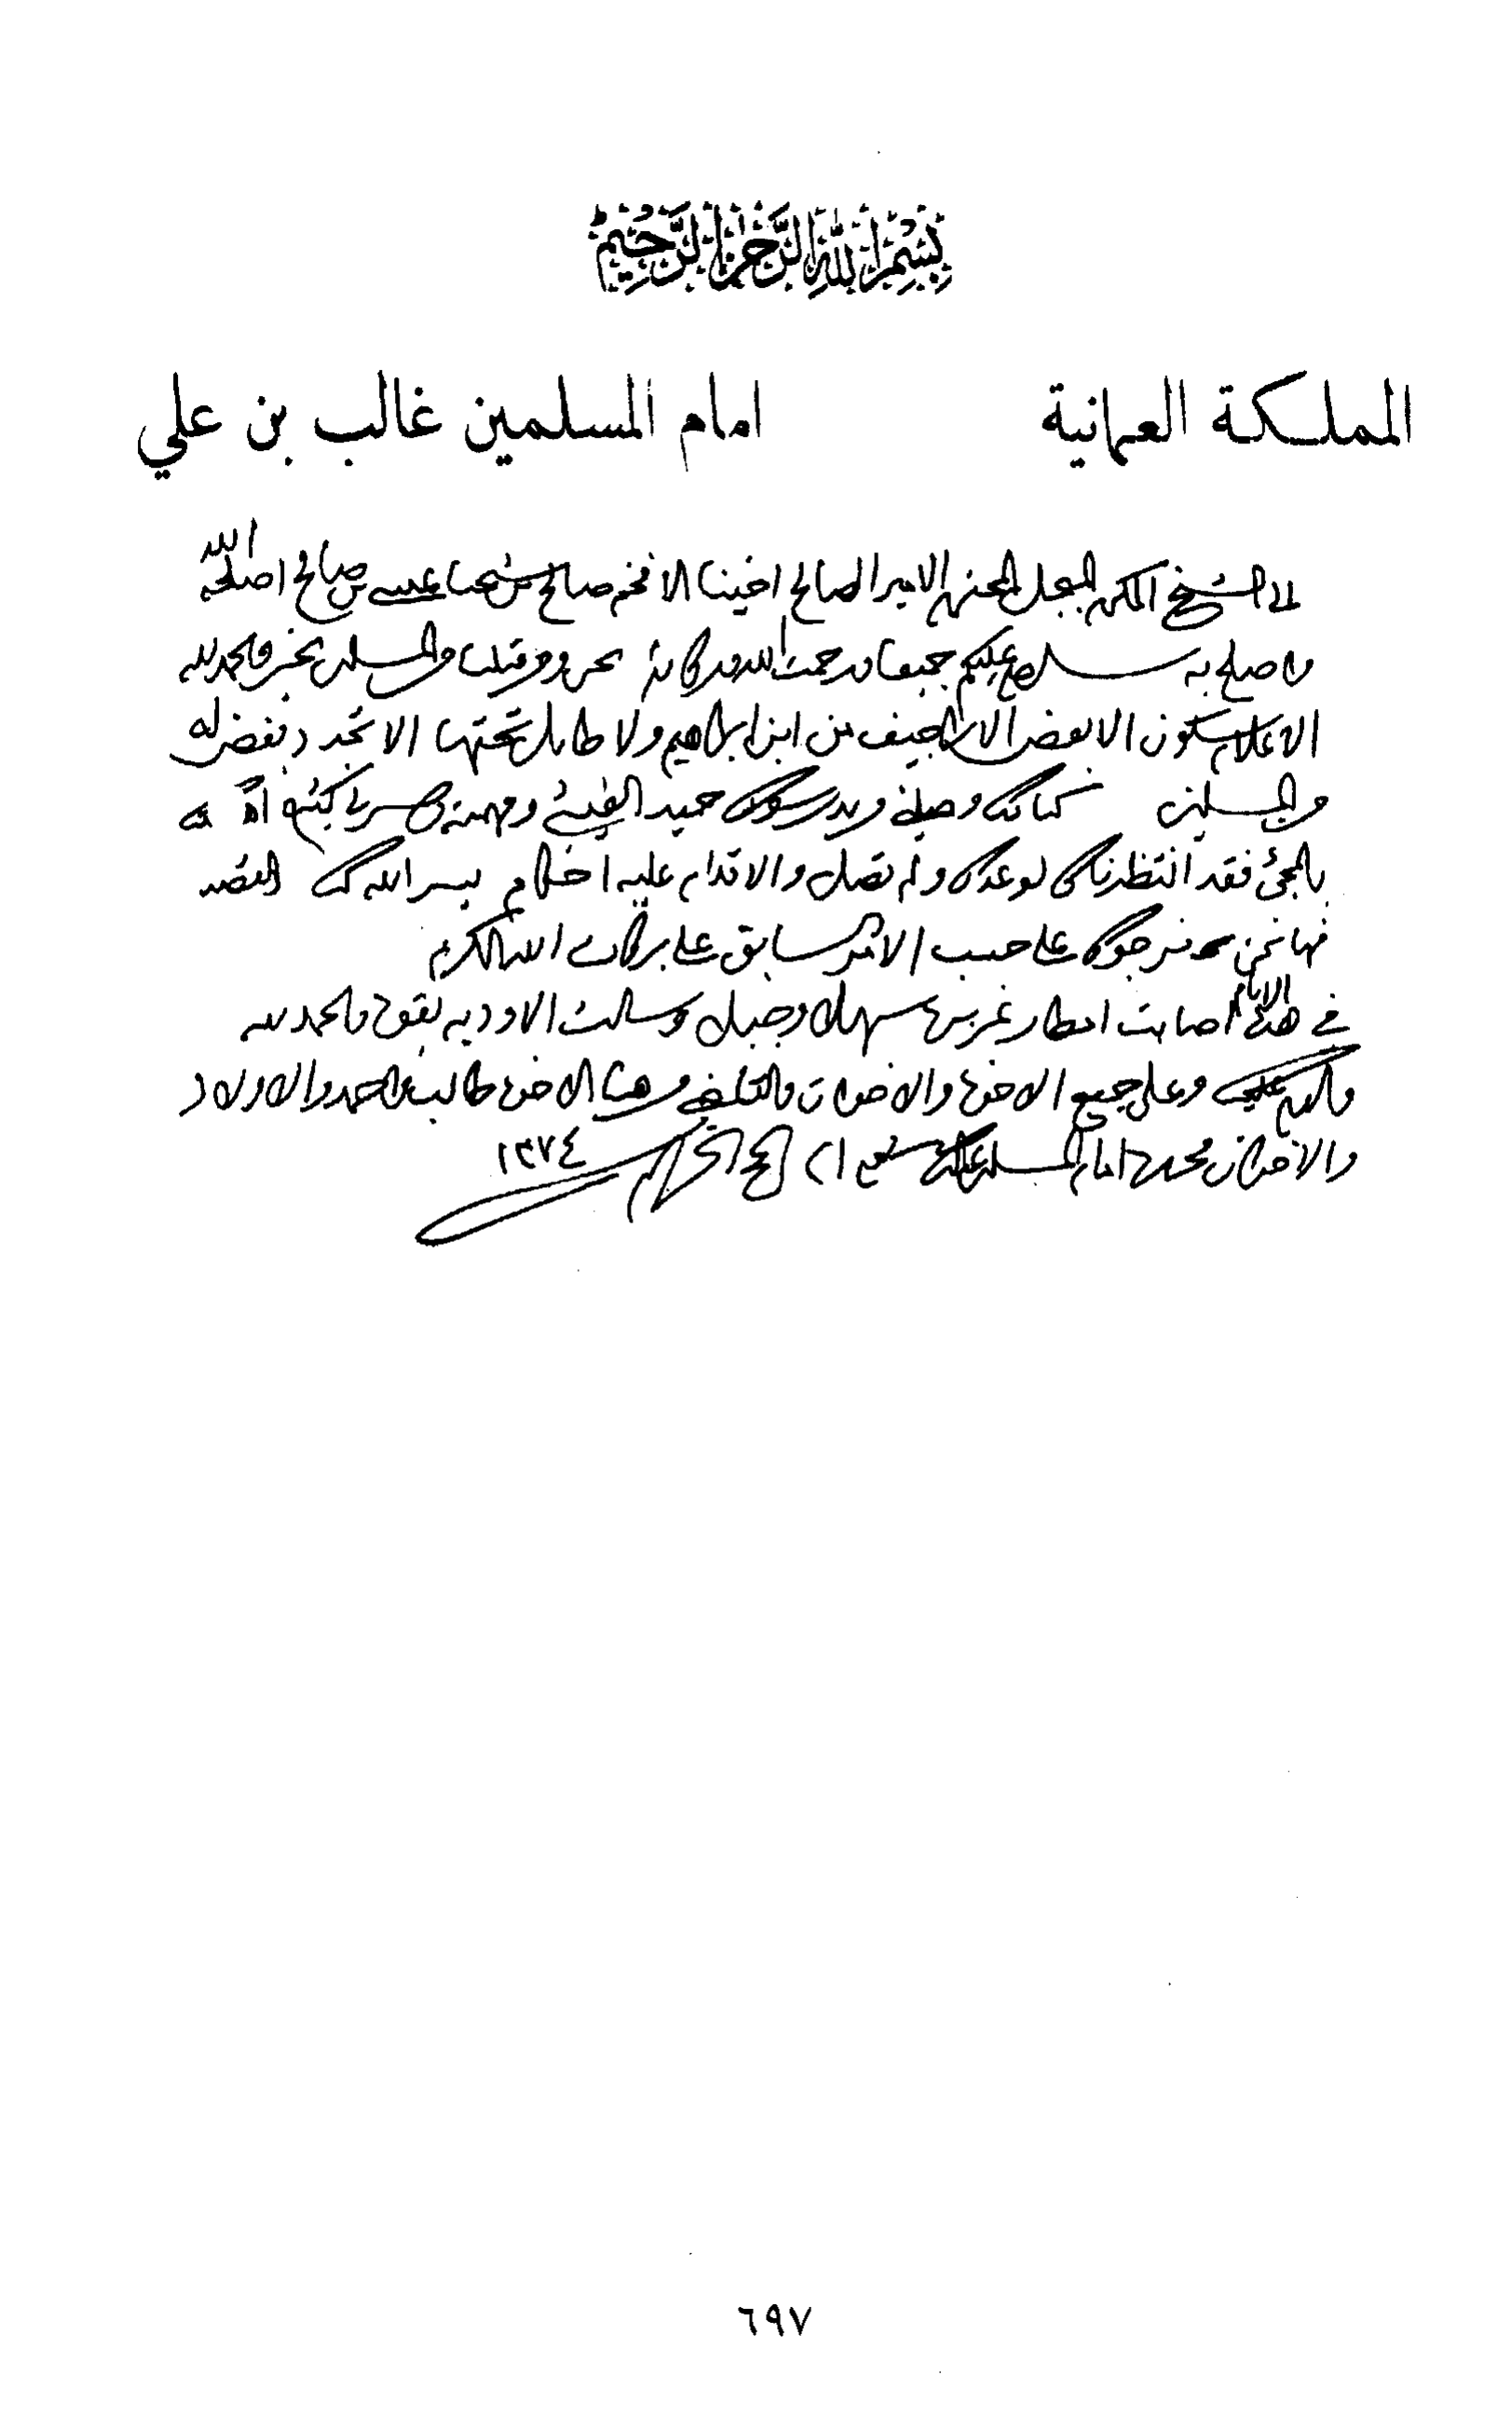 بسم الله الرحمن الرحيم
المملكة العمانية
امام المسلمين غالب بن علي
الى الشيخ المكرم المبجل المحترم الامير الصالح اخينا الافخم صالح بن شيخنا عيسى بن صالح اصلحه الله
واصلح به سلام عليكم جميعا ورحمت الله وبركاته نحن ومن قبلنا والمسلمين بخير والحمد لله
الاعلام سكون الا بعض الاراجيف من ابن ابراهيم ولا طايل تحتها الا تجرد بعض
والمسلمين كتابك وصلني وبيد رسولك حميد ومهمتي
بالمجئ فقد انتظرناك لوعدك ولم تصل والاقدام عليه يسر الله لك القصد
فها نحن نرجوك على حسب الامر السابق على بركات الله الكريم
في هذه الايام اصابت امطار غزيرة سهل وجبل وسالت الاودية بقوة والحمد لله
والسلام عليك وعلى جميع الاخوة والاخوان ومن هنا الاخوة طالب واحمد والاولاد
والاخوان محبك امام المسلمين الحج الحرام ١٣٧٤
٦٩٧